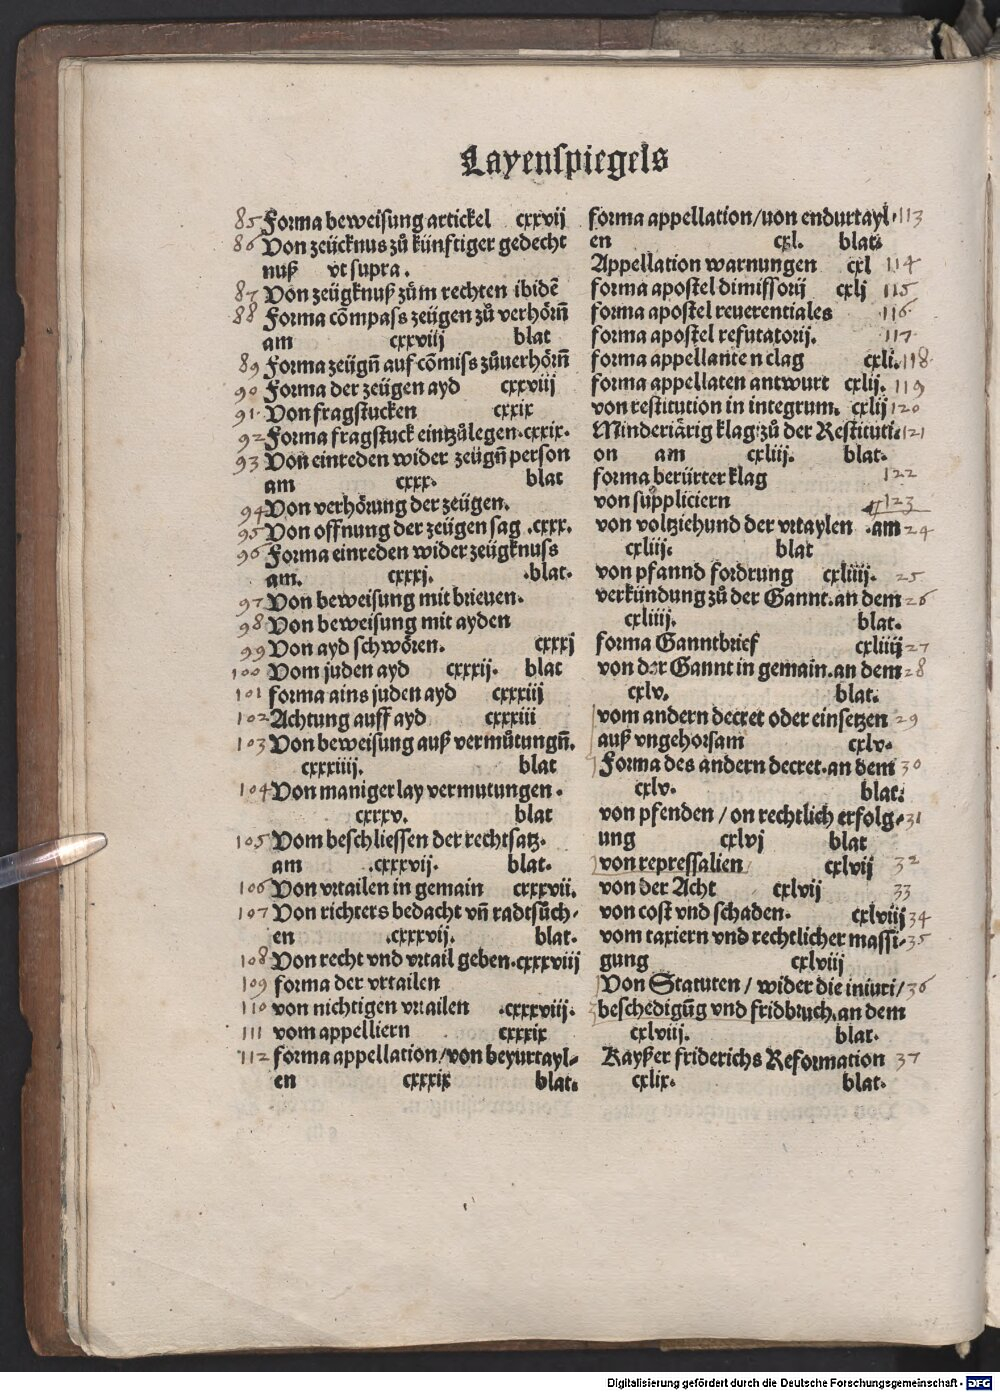 Layenspiegels
85 Forma beweisung artickel cxxvij
86 Von zeücknus zů künftiger gedecht
nuß vt supra.
87 Von zeügknuß zům rechten ibidē
88 Forma cōmpass zeügen zů verhörñ
am cxxviij blat
89 Forma zeügñ auf cōmiss zůuerhörñ
90 Forma der zeügen ayd cxxviij
91 Von fragstucken cxxix
92 Forma fragstuck eintzůlegen. cxxix.
93 Von einreden wider zeügñ person
am cxxx. blat
94 Von verhörung der zeügen.
95 Von offnung der zeügen sag .cxxx.
96 Forma einreden wider zeügknuss
am. cxxxj. .blat.
97 Von beweisung mit brieuen.
98 Von beweisung mit ayden
99 Von ayd schwören. cxxxj
100 Vom juden ayd cxxxij. blat
101 forma ains juden ayd cxxxiij
102 Achtung auff ayd cxxxiii
103 Von beweisung auß vermůtungñ.
cxxxiiij. blat
104 Von manigerlay vermutungen.
cxxxv. blat
105 Vom beschliessen der rechtsatz.
am .cxxxvij. blat.
106 Von vrtailen in gemain cxxxvii.
107 Von richters bedacht vñ radtsůch-
en .cxxxvij. blat.
108 Von recht vnd vrtail geben. cxxxviij
109 forma der vrtailen
110 von nichtigen vrtailen .cxxxviij.
111 vom appelliern cxxxix
112 forma appellation/von beyurtayl-
en cxxxix blat.
forma appellation/von endurtayl. 113
en cxl. blat.
Appellation warnungen cxl 114
forma apostel dimissorij cxlj 115
forma apostel reuerentiales 116
forma apostel refutatorij. 117
forma appellanten clag cxli. 118
forma appellaten antwurt cxlij. 119
von restitution in integrum. cxlij 120
Minderiärig klag zů der Restituti- 121
on am cxliij. blat.
forma berürter klag 122
von süppliciern 123
von voltziehund der vrtaylen .am 24
cxliij. blat
von pfannd fordrung cxliiij. 25
verkündung zů der Gannt. an dem 26
cxliiij. blat.
forma Ganntbrief cxliiij 27
von der Gannt in gemain. an dem 28
cxlv. blat.
vom andern decret oder einsetzen 29
auß vngehorsam cxlv.
Forma des andern decret. an dem 30
cxlv. blat.
von pfenden / on rechtlich erfolg- 31
ung cxlvj blat
von repressalien cxlvij 32
von der Acht cxlvij 33
von cost vnd schaden. cxlviij 34
vom taxiern vnd rechtlicher massi- 35
gung cxlviij
Von Statuten / wider die iniuri/ 36
beschedigũg vnd fridbruch. an dem
cxlviij. blat.
Kayßer friderichs Reformation 37
cxlix. blat.
Digitalisierung gefördert durch die Deutsche Forschungsgemeinschaft - DFG